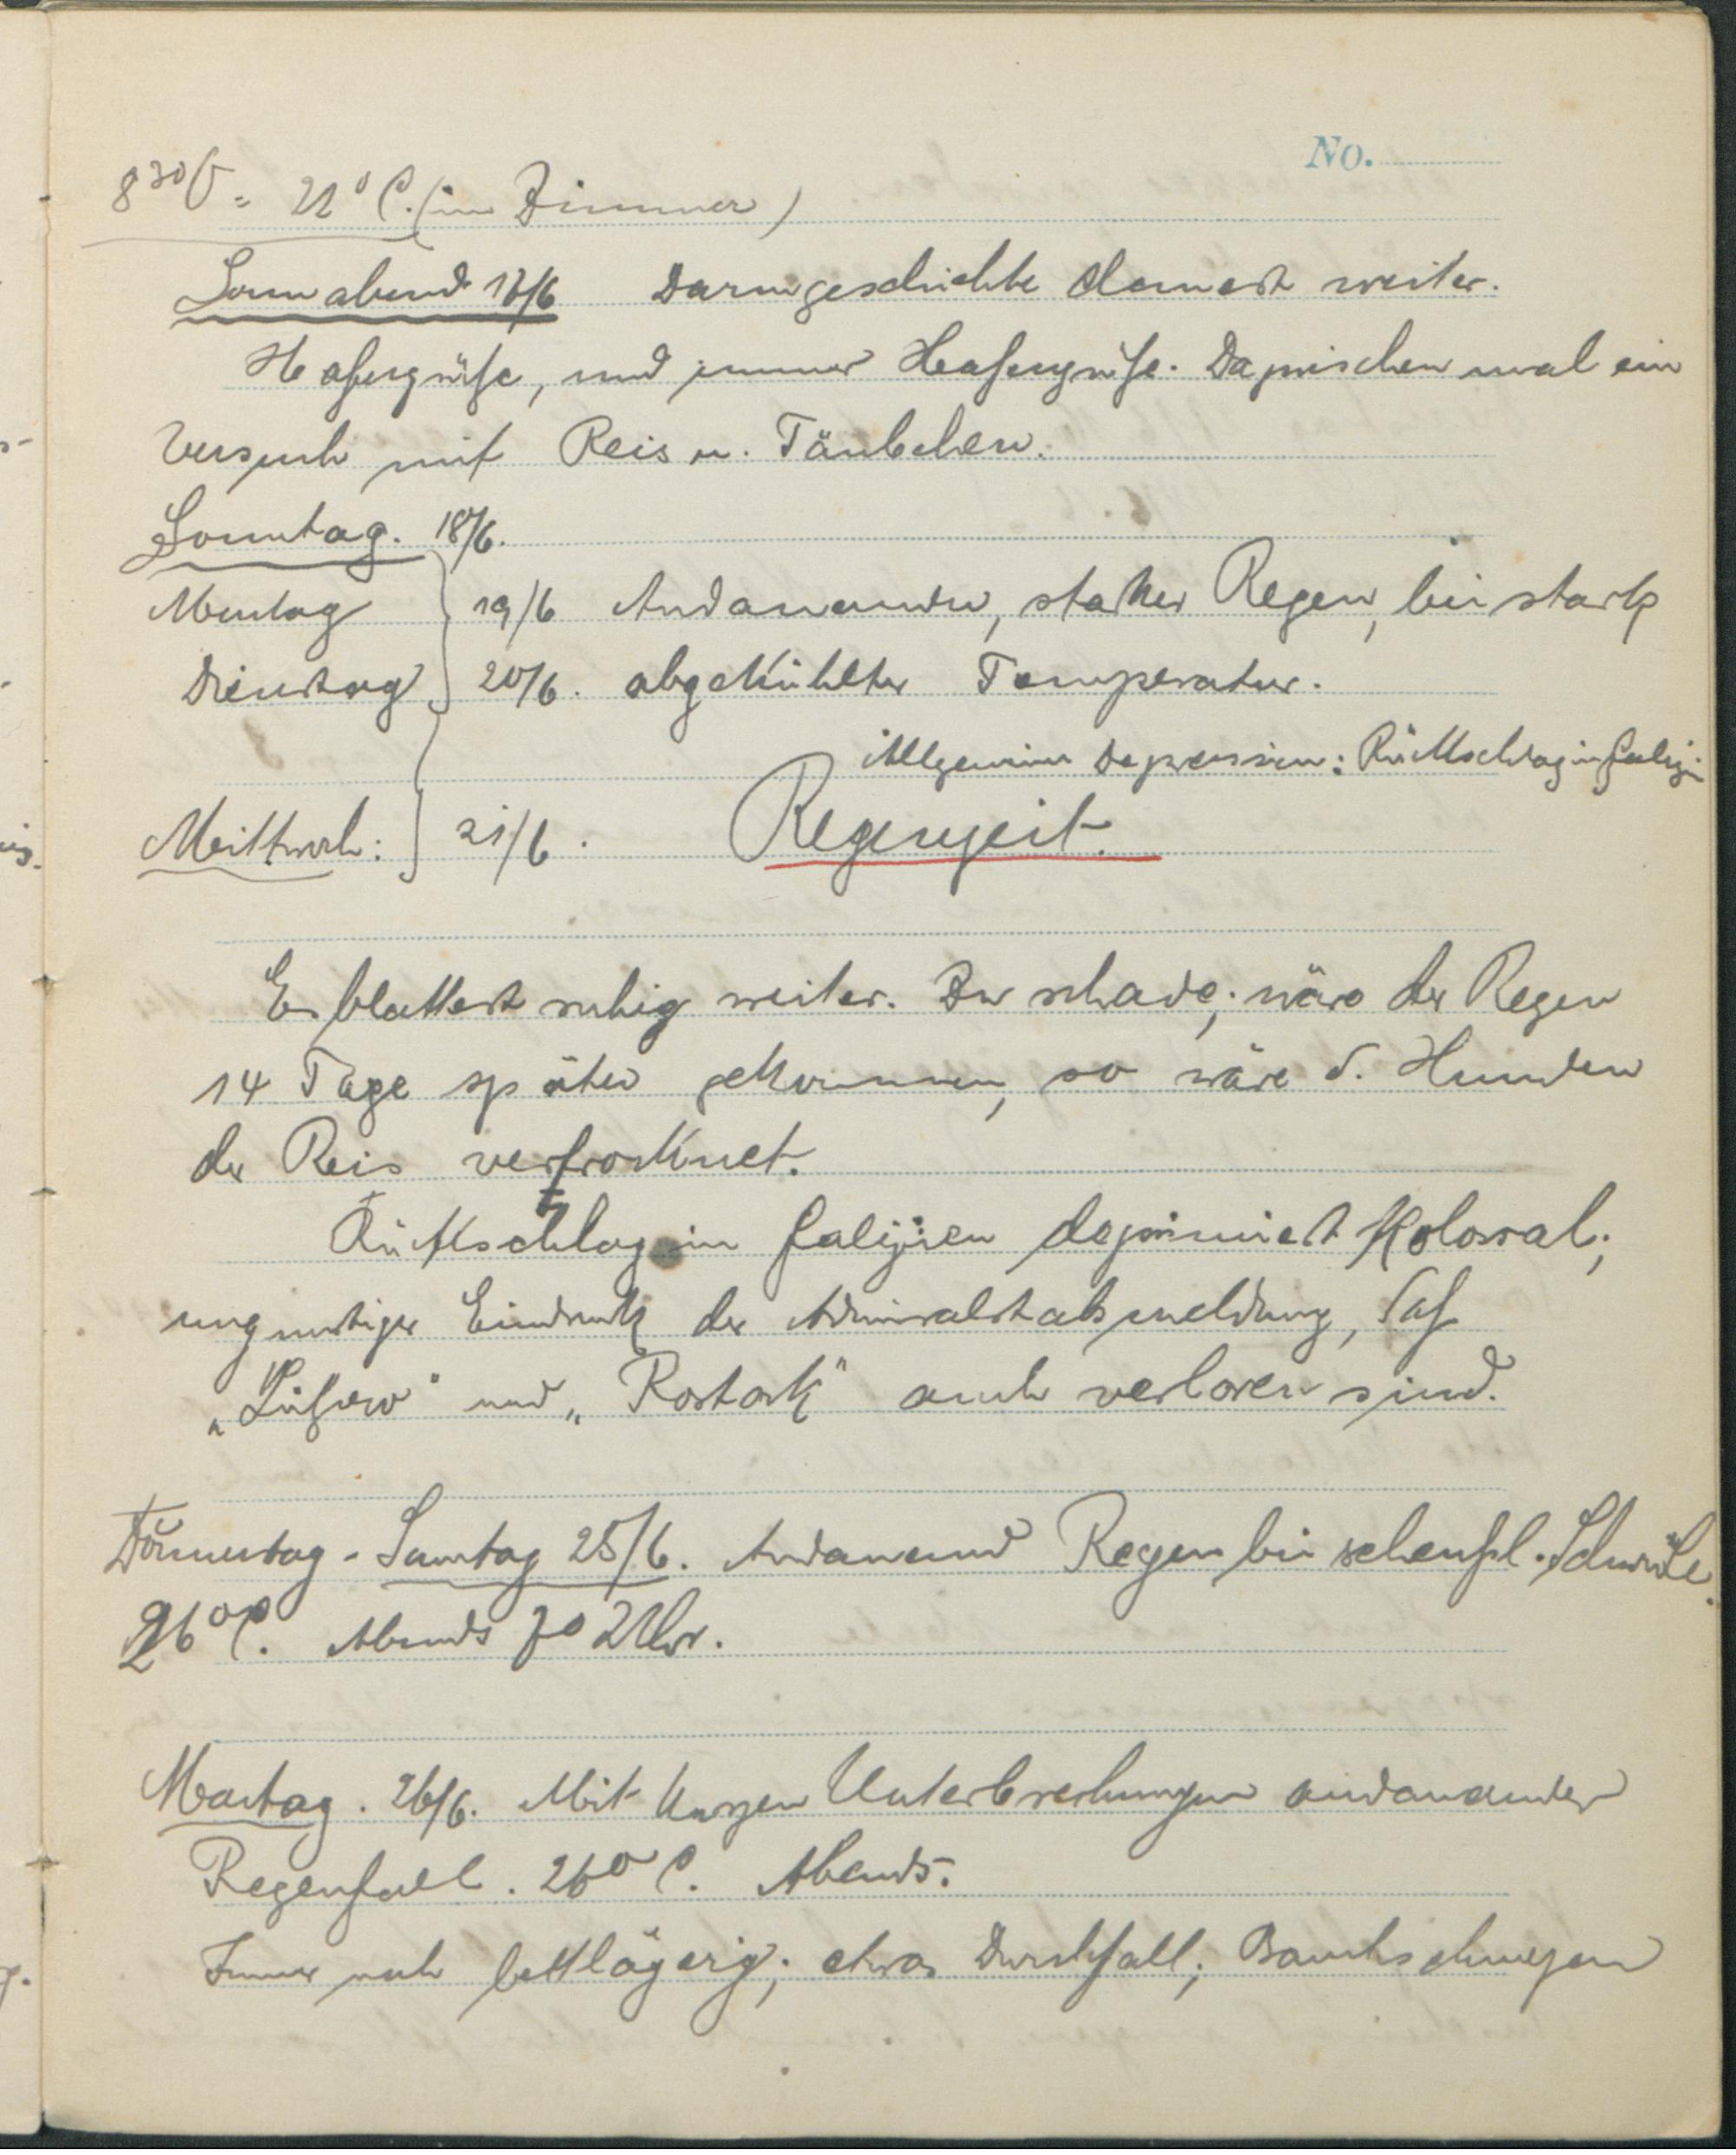 No.
8³⁰ = 22° C. (im Zimmer)
Sonnabend 17/6 Darmgeschichte dauert weiter.
Hafergrütze, und immer Hafergrütze. Dazwischen mal ein
Versuch mit Reis u. Täubchen.
Sonntag. 18/6.
Montag 19/6 Andauernder, starker Regen, bei stark
Dienstag 20/6. abgekühlter Temperatur.
Allgemeine Depression: Rückschlag in Galizien
Mittwoch: 21/6. Regenzeit.
Es plattert ruhig weiter. Zu schade; wäre der Regen
14 Tage später gekommen, so wäre d. Hunden
der Reis vertrocknet.
Rückschlag in Galizien deprimiert kolossal;
ungünstiger Eindruck der Admiralstabsmeldung, daß
„Lützow" und „Rostock" auch verloren sind.
Donnerstag - Sonntag 25/6. Andauernd Regen bei scheußl. Schwüle.
26° C. Abends 7⁰ Uhr.
Montag. 26/6. Mit kurzen Unterbrechungen andauernder
Regenfall. 26° C. Abends.
Immer noch bettlägerig; etwas Durchfall; Bauchschmerzen